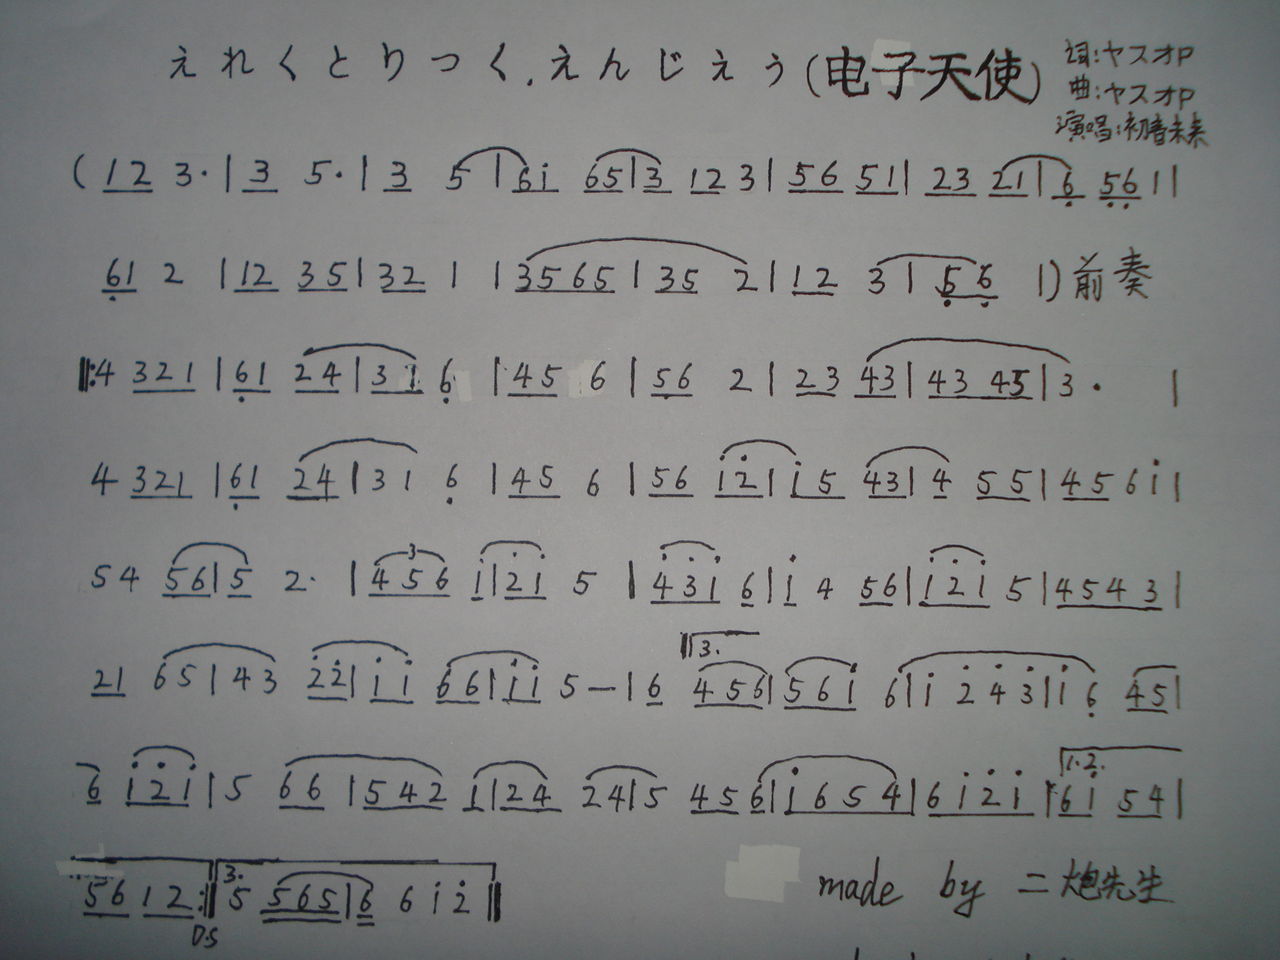 えれくとりっく.えんじぇぅ(电子天使)
词:ヤスオP
曲:ヤスオP
演唱:初音未来
( 12 3· | 3 5· | 3 5 | 6i 65 | 3 12 3 | 56 51 | 23 21 | 6 56 1 |
61 2 | 12 35 | 32 1 | 3565 | 35 2 | 12 3 | 56 1) 前奏
‖: 4 321 | 61 24 | 31 6 | 45 6 | 56 2 | 23 43 | 43 45 | 3· |
4 321 | 61 24 | 31 6 | 45 6 | 56 i2 | i5 43 | 4 55 | 45 6i |
54 56 | 5 2· | 3 456 i | 2i 5 | 43i 6 | i 4 56 | i2i 5 | 4543 |
21 65 | 43 22 | ii 66 | ii 5 — | 6 3. 456 | 56i 6 | i243 | i6 45 |
6 i2i | 5 66 | 542 1 | 24 24 | 5 456 | i654 | 6i2i | 1.2. 6i 54 |
56 12 :‖ 3. 5 565 | 6 6i2 ‖
D.S
made by 二炮先生